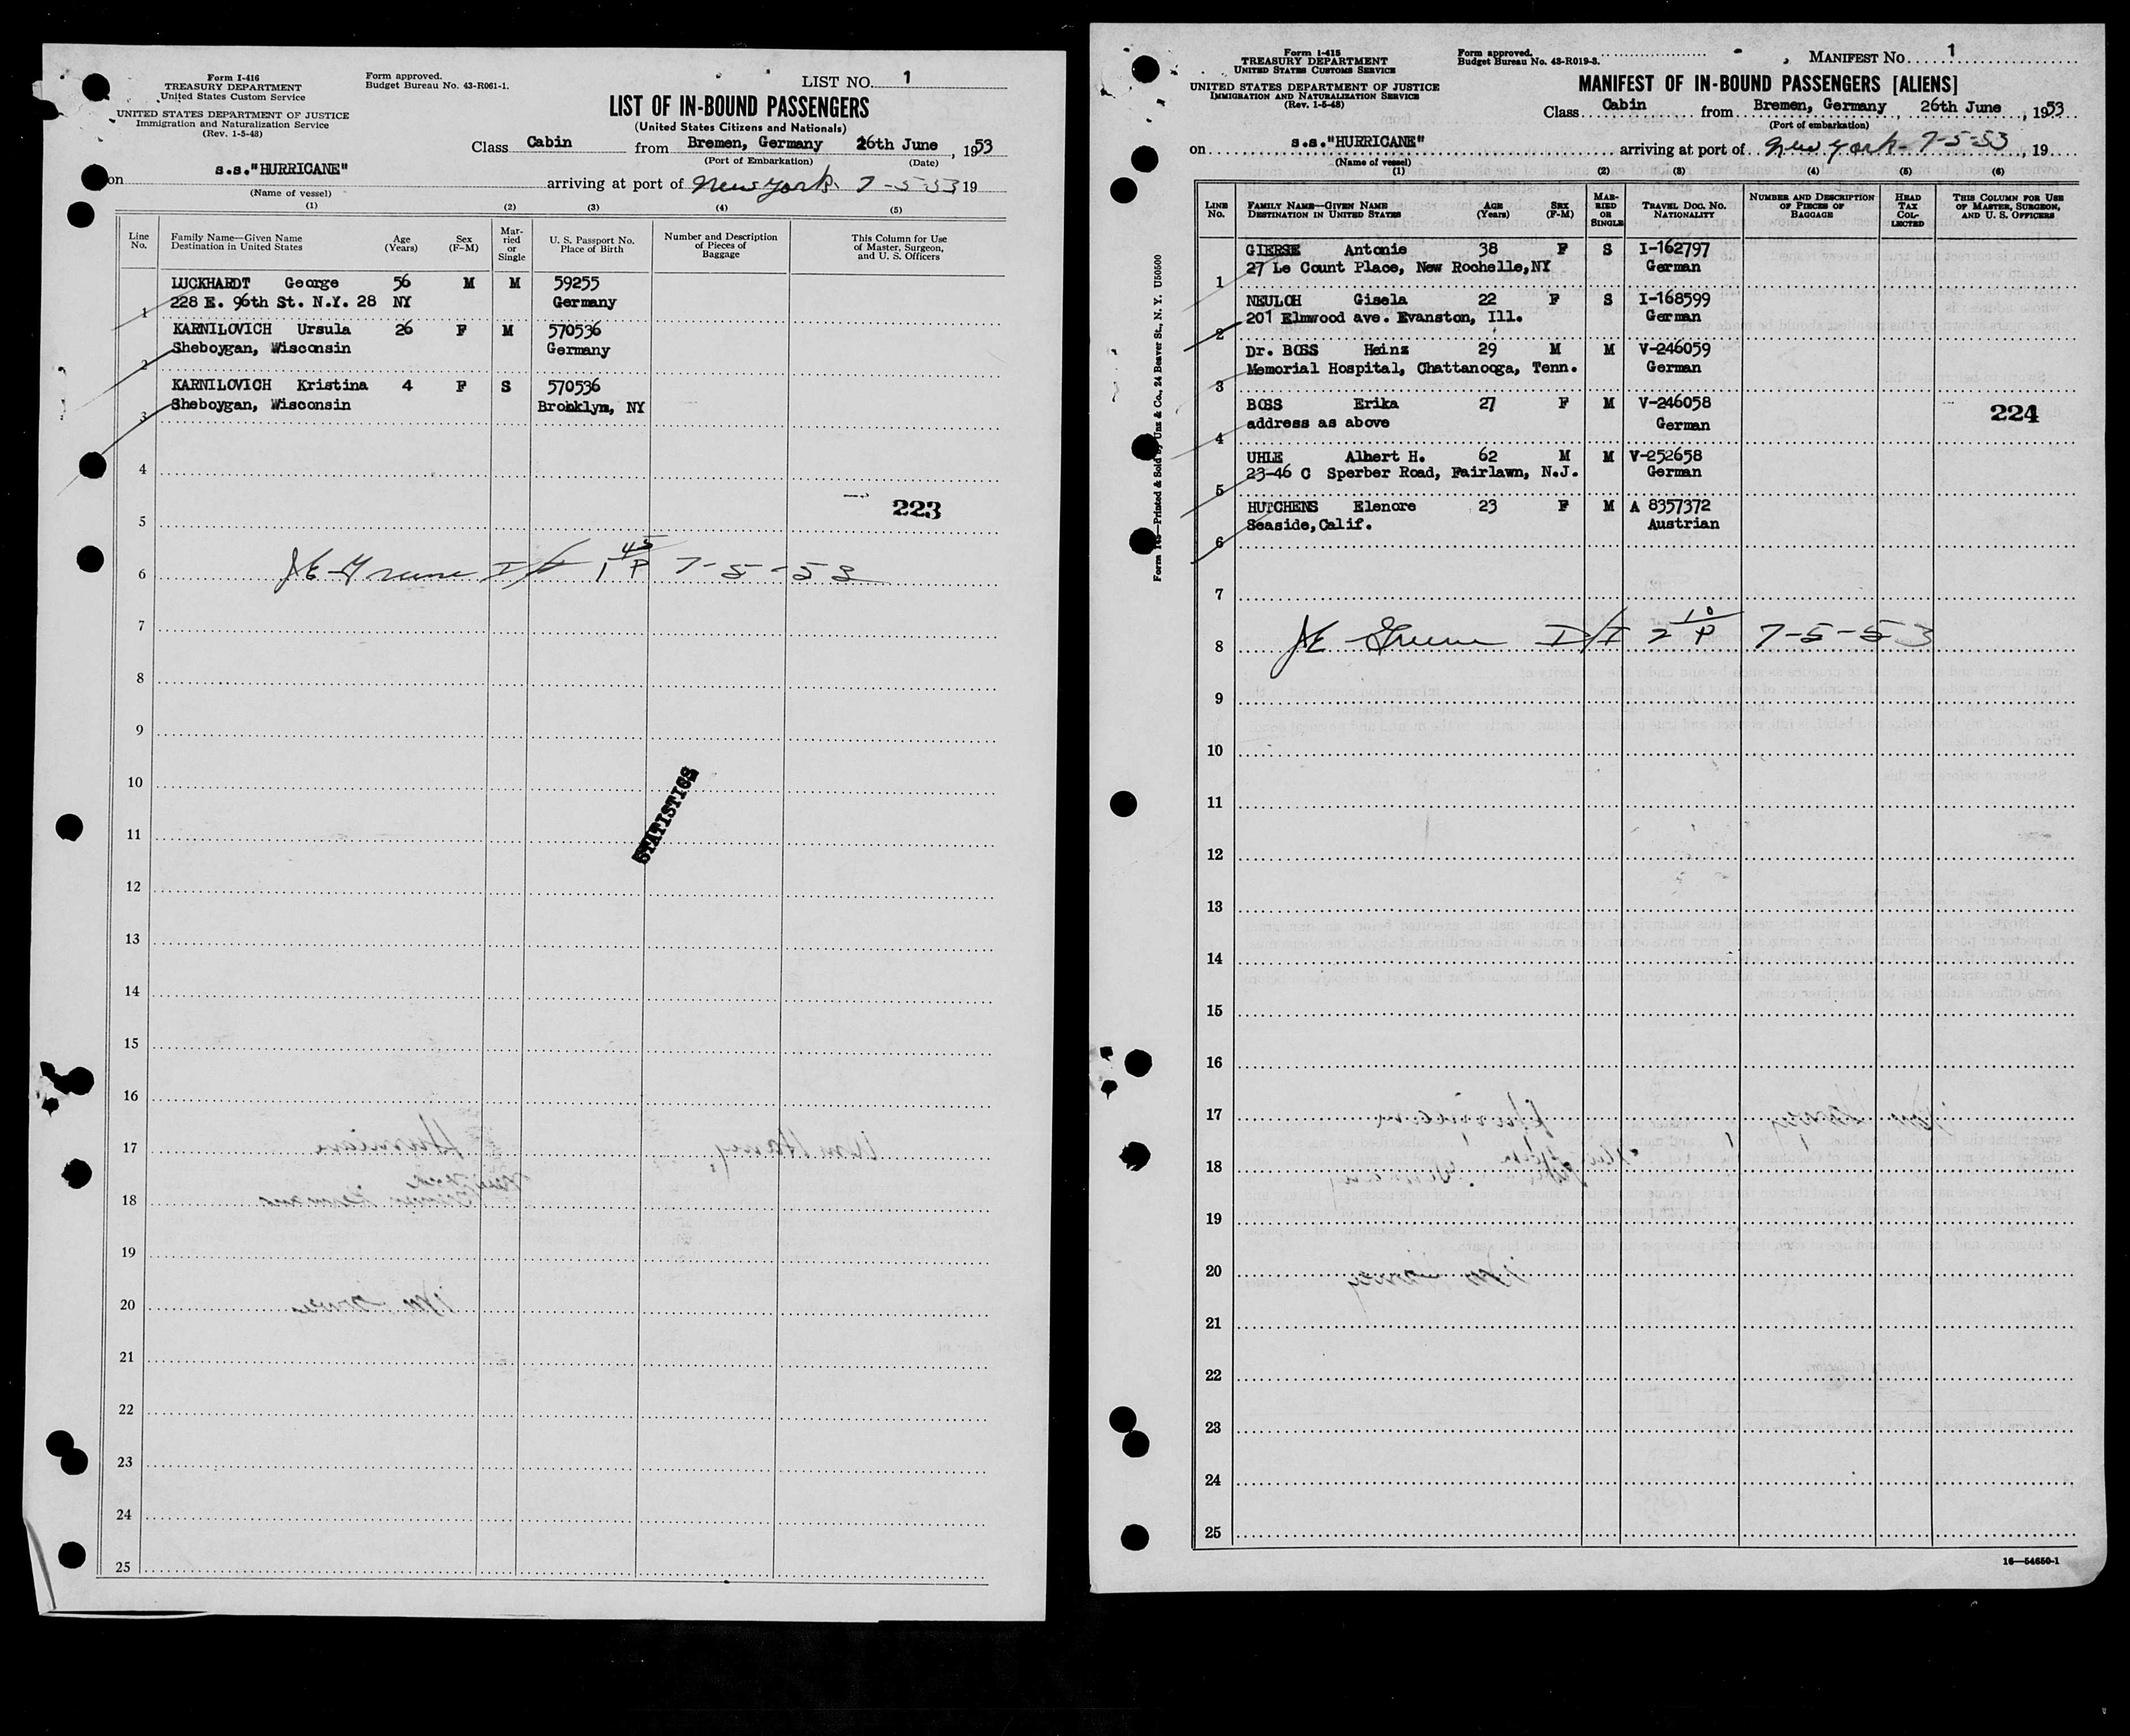 Form I-416
TREASURY DEPARTMENT
United States Custom Service
UNITED STATES DEPARTMENT OF JUSTICE
Immigration and Naturalization Service
(Rev. 1-5-48)
Form approved.
Budget Bureau No. 43-R061-1.
LIST NO. 1
LIST OF IN-BOUND PASSENGERS
(United States Citizens and Nationals)
Class Cabin from Bremen, Germany 26th June, 1953
(Port of Embarkation) (Date)
on s.s."HURRICANE" arriving at port of New York. 7-5-53 19
(Name of vessel)
(1) (2) (3) (4) (5)
Line No. Family Name—Given Name Destination in United States Age (Years) Sex (F-M) Married or Single U. S. Passport No. Place of Birth Number and Description of Pieces of Baggage This Column for Use of Master, Surgeon, and U. S. Officers
LUCKHARDT George 56 M M 59255
1 228 E. 96th St. N.Y. 28 NY Germany
KARNILOVICH Ursula 26 F M 570536
2 Sheboygan, Wisconsin Germany
KARNILOVICH Kristina 4 F S 570536
3 Sheboygan, Wisconsin Brooklyn, NY
4
223
5
6 JE Greene I/I 1 45 P 7-5-53
7
8
9
10
STATISTICS
11
12
13
14
15
16
17
18
19
20
21
22
23
24
25
Form I-415
TREASURY DEPARTMENT
UNITED STATES CUSTOMS SERVICE
UNITED STATES DEPARTMENT OF JUSTICE
IMMIGRATION AND NATURALIZATION SERVICE
(Rev. 1-5-48)
Form approved.
Budget Bureau No. 43-R019-3.
MANIFEST NO. 1
MANIFEST OF IN-BOUND PASSENGERS [ALIENS]
Class Cabin from Bremen, Germany, 26th June, 1953
(Port of embarkation)
on s.s."HURRICANE" arriving at port of New York - 7-5-53, 19
(Name of vessel)
(1) (2) (3) (4) (5) (6)
LINE NO. FAMILY NAME—GIVEN NAME DESTINATION IN UNITED STATES AGE (Years) SEX (F-M) MARRIED OR SINGLE TRAVEL DOC. NO. NATIONALITY NUMBER AND DESCRIPTION OF PIECES OF BAGGAGE HEAD TAX COLLECTED THIS COLUMN FOR USE OF MASTER, SURGEON, AND U. S. OFFICERS
GIERSE Antonie 38 F S I-162797
1 27 Le Count Place, New Rochelle,NY German
NEULOH Gisela 22 F S I-168599
2 201 Elmwood ave. Evanston, Ill. German
Dr. BOSS Heinz 29 M M V-246059
3 Memorial Hospital, Chattanooga, Tenn. German
BOSS Erika 27 F M V-246058
4 address as above German
224
UHLE Albert H. 62 M M V-252658
5 23-46 C Sperber Road, Fairlawn, N.J. German
HUTCHENS Elenore 23 F M A 8357372
6 Seaside,Calif. Austrian
7
8 JE Greene I/I 2 10 P 7-5-53
9
10
11
12
13
14
15
16
17
18
19
20
21
22
23
24
25
16—54650-1
Printed & Sold by Unz & Co., 24 Beaver St., N. Y. U50500